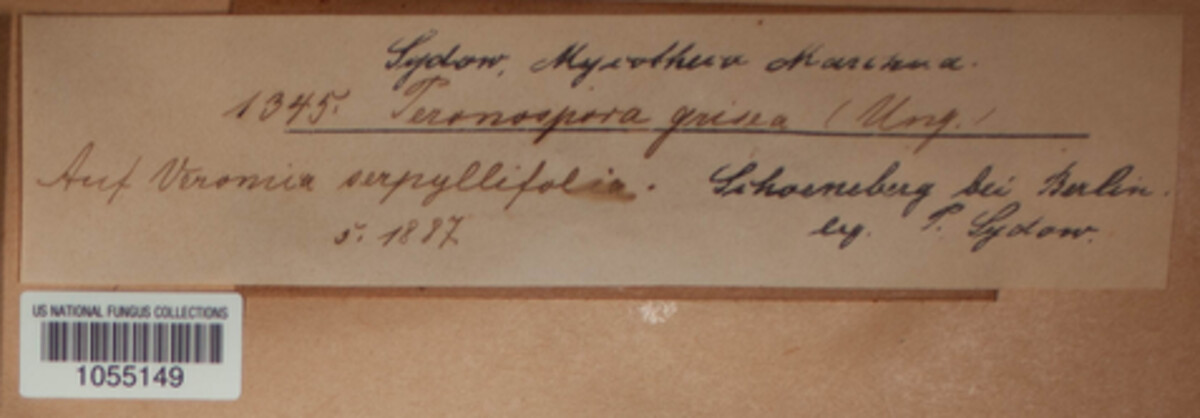 Sydow, Mycotheca Marchica.
1345. Peronospora grisea (Ung.)
Auf Veronica serpyllifolia. Schoeneberg bei Berlin.
5. 1887 leg. P. Sydow.
US NATIONAL FUNGUS COLLECTIONS
1055149